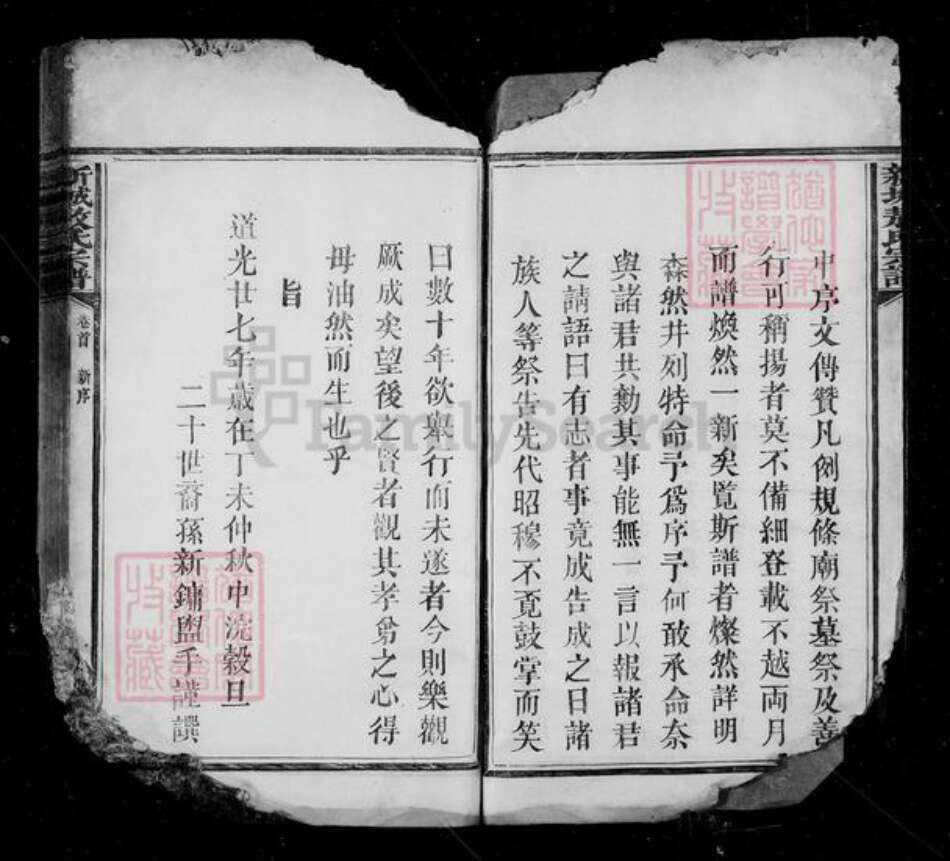 中序文傳贊凡例規條廟祭墓祭及善
行可稱揚者莫不備細登載不越両月
而譜煥然一新矣覧斯譜者燦然詳明
森然井列特命予爲序予何敢承命奈
與諸君共勷其事能無一言以報諸君
之請語曰有志者事竟成告成之日諸
族人等祭告先代昭穆不覔鼓掌而笑
曰數十年欲舉行而未遂者今則樂觀
厥成矣望後之賢者觀其孝
之心得
毋油然而生也乎
旨
道光廿七年歲在丁未仲秋中浣榖旦
二十世裔孫新鏞盥手謹譔
新城敖氏宗譜
卷首 新序
FamilySearch